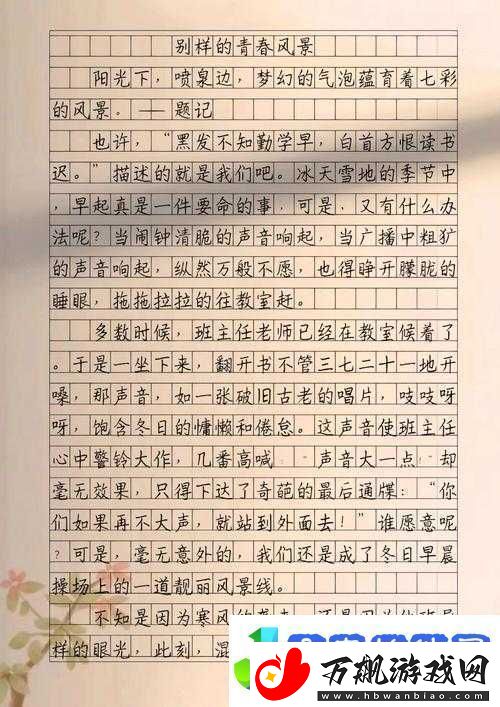 别样的青春风景
阳光下，喷泉边，梦幻的气泡蕴育着七彩
的风景。——题记
也许，“黑发不知勤学早，白首方恨读书
迟。”描述的就是我们吧。冰天雪地的季节中
，早起真是一件要命的事，可是，又有什么办
法呢？当闹钟清脆的声音响起，当广播中粗犷
的声音响起，纵然万般不愿，也得睁开朦胧的
睡眼，拖拖拉拉的往教室赶。
多数时候，班主任老师已经在教室候着了
。于是一坐下来，翻开书不管三七二十一地开
嗓，那声音，如一张破旧古老的唱片，吱吱呀
呀，饱含冬日的慵懒和倦怠。这声音使班主任
心中警铃大作，几番高喊 声音大一点 却
毫无效果，只得下达了奇葩的最后通牒：“你
们如果再不大声，就站到外面去！”谁愿意呢
？可是，毫无意外的，我们还是成了冬日早晨
操场上的一道靓丽风景线。
不知是因为寒风的
样的眼光，此刻，混
万飙游戏网
www.hbwanbiao.com